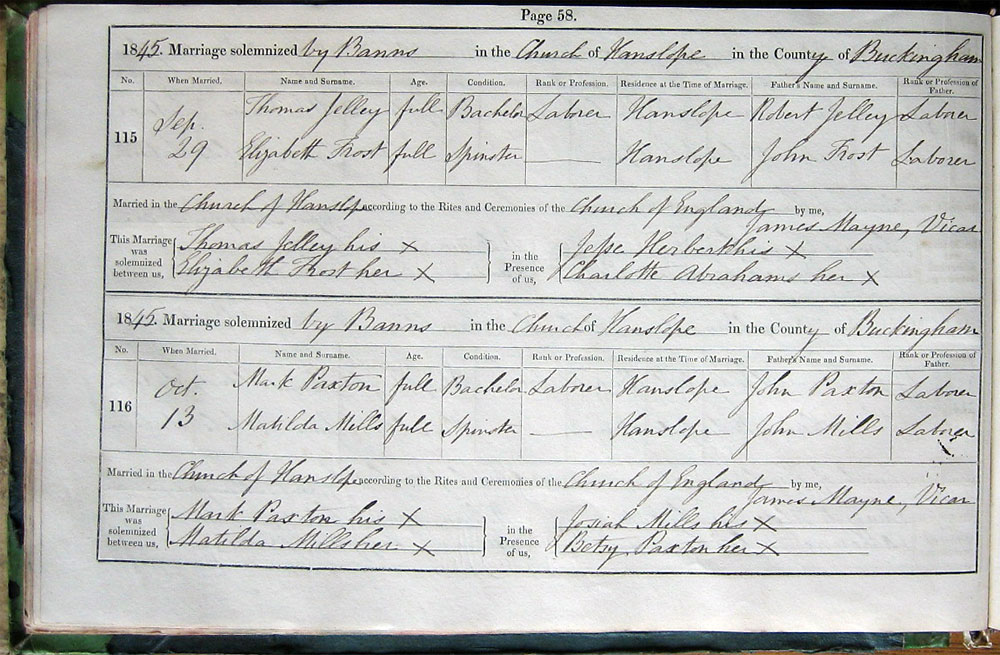 Page 58.
1845. Marriage solemnized by Banns in the Church of Hanslope in the County of Buckingham
No. When Married. Name and Surname. Age. Condition. Rank or Profession. Residence at the Time of Marriage. Father's Name and Surname. Rank or Profession of Father.
115 Sep. 29 Thomas Jelley full Bachelor Laborer Hanslope Robert Jelley Laborer
Elizabeth Frost full Spinster — Hanslope John Frost Laborer
Married in the Church of Hanslope according to the Rites and Ceremonies of the Church of England by me,
James Mayne, Vicar
This Marriage was solemnized between us, Thomas Jelley his X in the Presence of us, Jesse Herbert his X
Elizabeth Frost her X Charlotte Abrahams her X
1845. Marriage solemnized by Banns in the Church of Hanslope in the County of Buckingham
No. When Married. Name and Surname. Age. Condition. Rank or Profession. Residence at the Time of Marriage. Father's Name and Surname. Rank or Profession of Father.
116 Oct. 13 Mark Paxton full Bachelor Laborer Hanslope John Paxton Laborer
Matilda Mills full Spinster — Hanslope John Mills Laborer
Married in the Church of Hanslope according to the Rites and Ceremonies of the Church of England by me,
James Mayne, Vicar
This Marriage was solemnized between us, Mark Paxton his X in the Presence of us, Josiah Mills his X
Matilda Mills her X Betsy Paxton her X